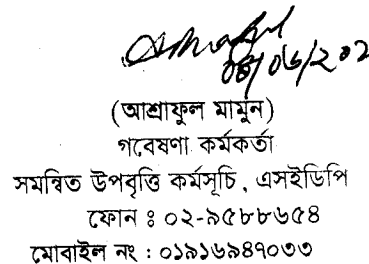 ০৪/০৬/২০২
(আশ্রাফুল মামুন)
গবেষণা কর্মকর্তা
সমন্বিত উপবৃত্তি কর্মসূচি, এসইডিপি
ফোন ঃ ০২-৯৫৮৮৬৫৪
মোবাইল নং : ০১৯১৬৯৪৭০৩৩